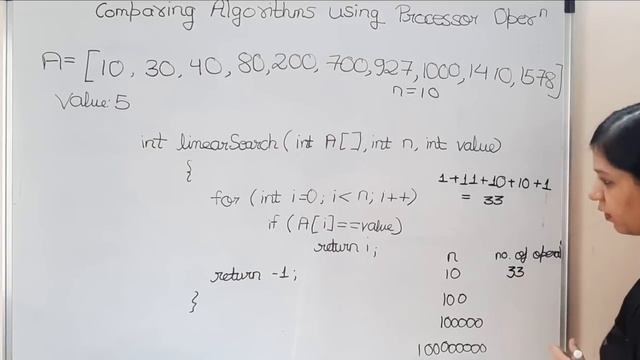 Comparing Algorithms using Processor Operⁿ
A= [10, 30, 40, 80, 200, 700, 927, 1000, 1410, 1578]
n=10
Value: 5
int linearSearch (int A[], int n, int value)
{
for (int i=0; i<n; i++)
if (A[i]==value)
return i;
return -1;
}
1+11+10+10+1
= 33
n no. of operaⁿ
10 33
100
100000
100000000